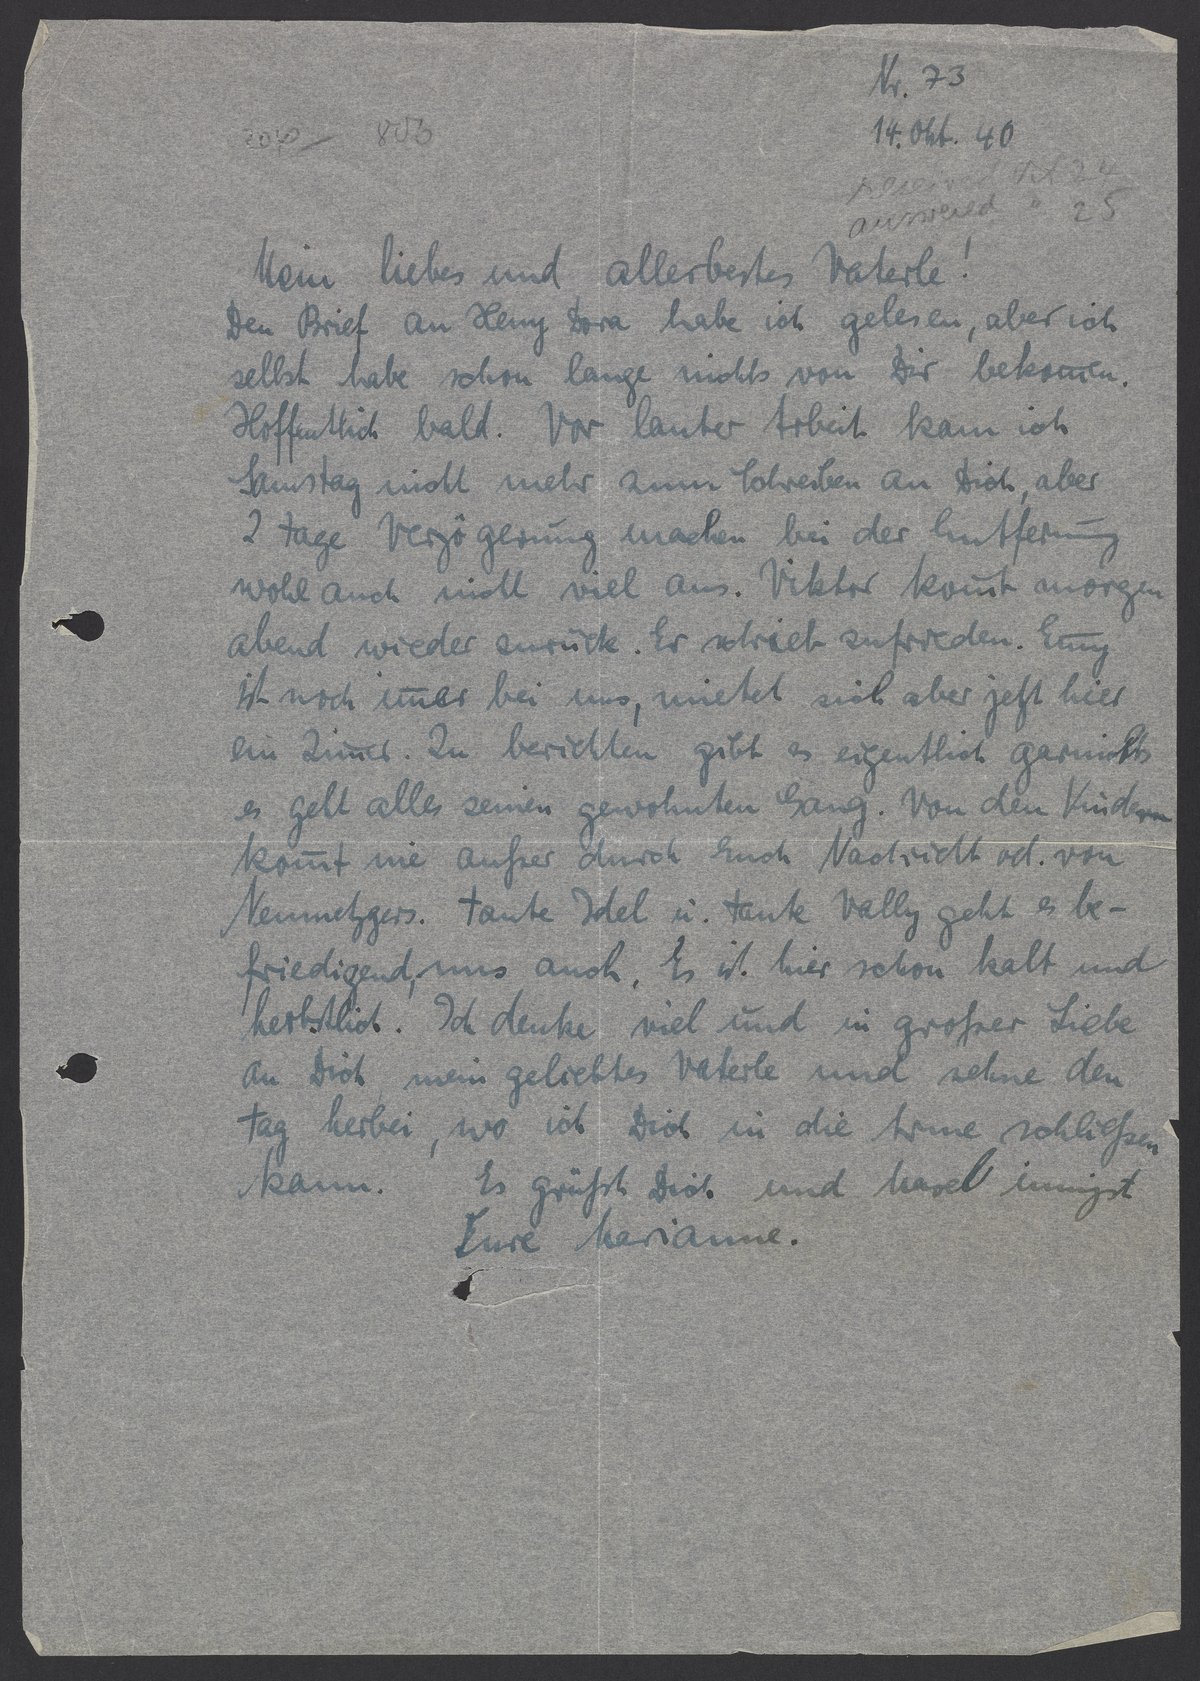 Nr. 73
14. Okt. 40
received Okt 24
answered " 25
Mein liebes und allerbestes Vaterle!
Den Brief an Heny Dora habe ich gelesen, aber ich
selbst habe schon lange nichts von Dir bekom̅en.
Hoffentlich bald. Vor lauter Arbeit kam ich
Samstag nicht mehr zum Schreiben an Dich, aber
2 Tage Verzögerung machen bei der Entfernung
wohl auch nicht viel aus. Viktor kom̅t morgen
abend wieder zurück. Er schrieb zufrieden. Em̅y
ist noch im̅er bei uns, mietet sich aber jetzt hier
ein Zim̅er. Zu berichten gibt es eigentlich garnichts
es geht alles seinen gewohnten Gang. Von den Kindern
kom̅t nie außer durch Euch Nachricht od. von
Neumetzgers. Tante Idel u. Tante Vally geht es be-
friedigend, uns auch. Es ist hier schon kalt und
herbstlich. Ich denke viel und in großer Liebe
an Dich mein geliebtes Vaterle und sehne den
Tag herbei, wo ich Dich in die Arme schließen
kann. Es grüßt Dich und innigst
Eure Marianne.